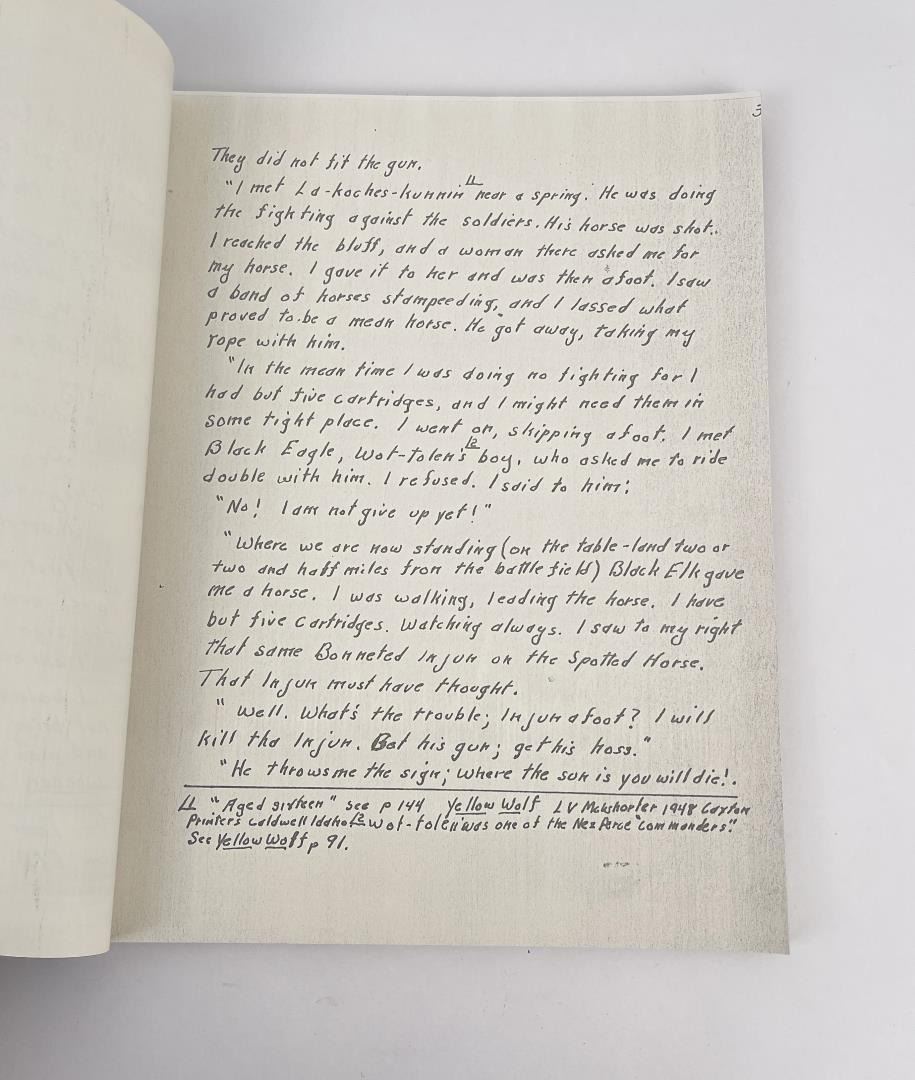 3
They did not fit the gun.
"I met La-koches-kunnin 11 near a spring. He was doing
the fighting against the soldiers. His horse was shot.
I reached the bluff, and a woman there asked me for
my horse. I gave it to her and was then afoot. I saw
a band of horses stampeeding, and I lassed what
proved to be a mean horse. He got away, taking my
rope with him.
"In the mean time I was doing no fighting for I
had but five cartridges, and I might need them in
some tight place. I went on, skipping afoot. I met
Black Eagle, Wot-tolen's 12 boy, who asked me to ride
double with him. I refused. I said to him;
"No! I am not give up yet!"
"Where we are now standing (on the table-land two or
two and half miles from the battle field) Black Elk gave
me a horse. I was walking, leading the horse. I have
but five cartridges. Watching always. I saw to my right
that same Bonneted Injun on the Spotted Horse.
That Injun must have thought.
"Well. What's the trouble; Injun afoot? I will
kill tha Injun. Get his gun; get his hoss."
"He throws me the sign; Where the sun is you will die!.
11 "Aged sixteen" see p 144 Yellow Wolf LV McWhorter 1948 Caxton
Printers Caldwell Idaho 12 Wot-tolen was one of the Nez Perce "commanders".
See Yellow Wolf p 91.